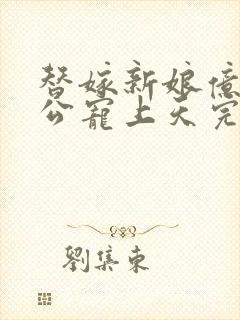 替嫁新娘億
公寵上天完
劉集東